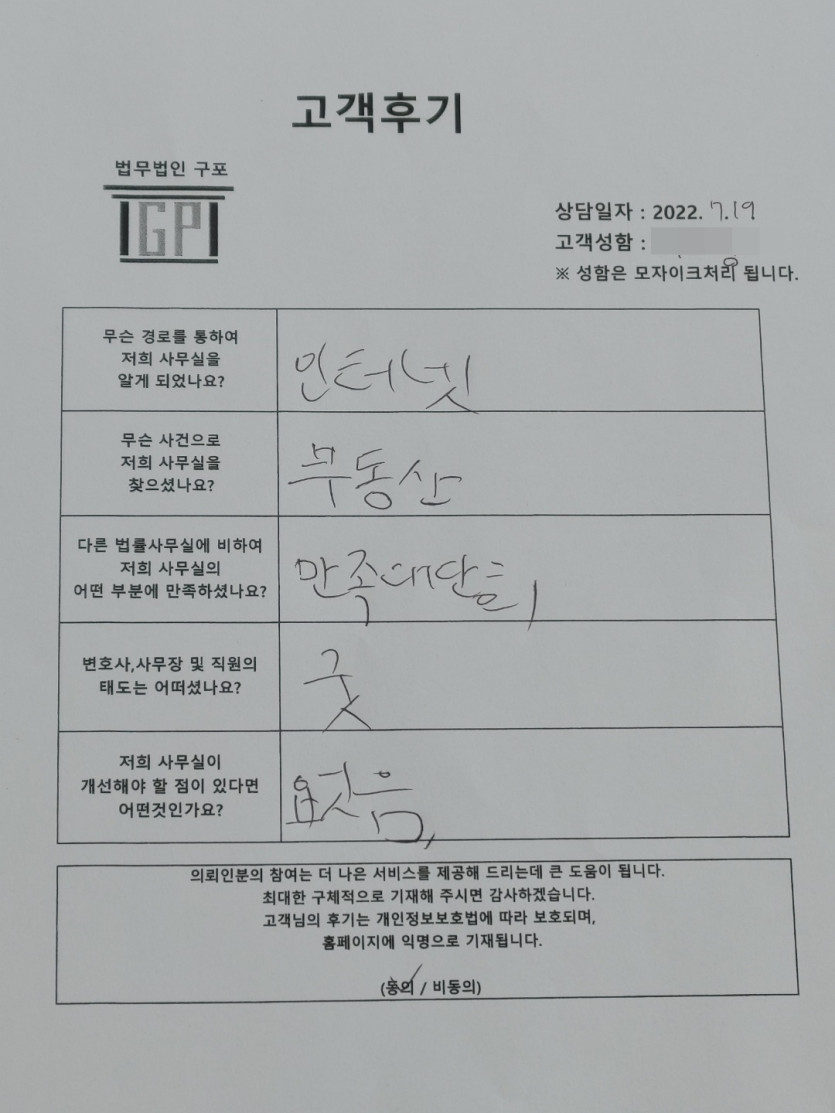 고객후기
법무법인 구포
GP
상담일자 : 2022. 7.19
고객성함 :
※ 성함은 모자이크처리 됩니다.
무슨 경로를 통하여
저희 사무실을
알게 되었나요?
인터넷
무슨 사건으로
저희 사무실을
찾으셨나요?
부동산
다른 법률사무실에 비하여
저희 사무실의
어떤 부분에 만족하셨나요?
만족대단히
변호사,사무장 및 직원의
태도는 어떠셨나요?
굿
저희 사무실이
개선해야 할 점이 있다면
어떤것인가요?
없음,
의뢰인분의 참여는 더 나은 서비스를 제공해 드리는데 큰 도움이 됩니다.
최대한 구체적으로 기재해 주시면 감사하겠습니다.
고객님의 후기는 개인정보보호법에 따라 보호되며,
홈페이지에 익명으로 기재됩니다.
(동의 / 비동의)